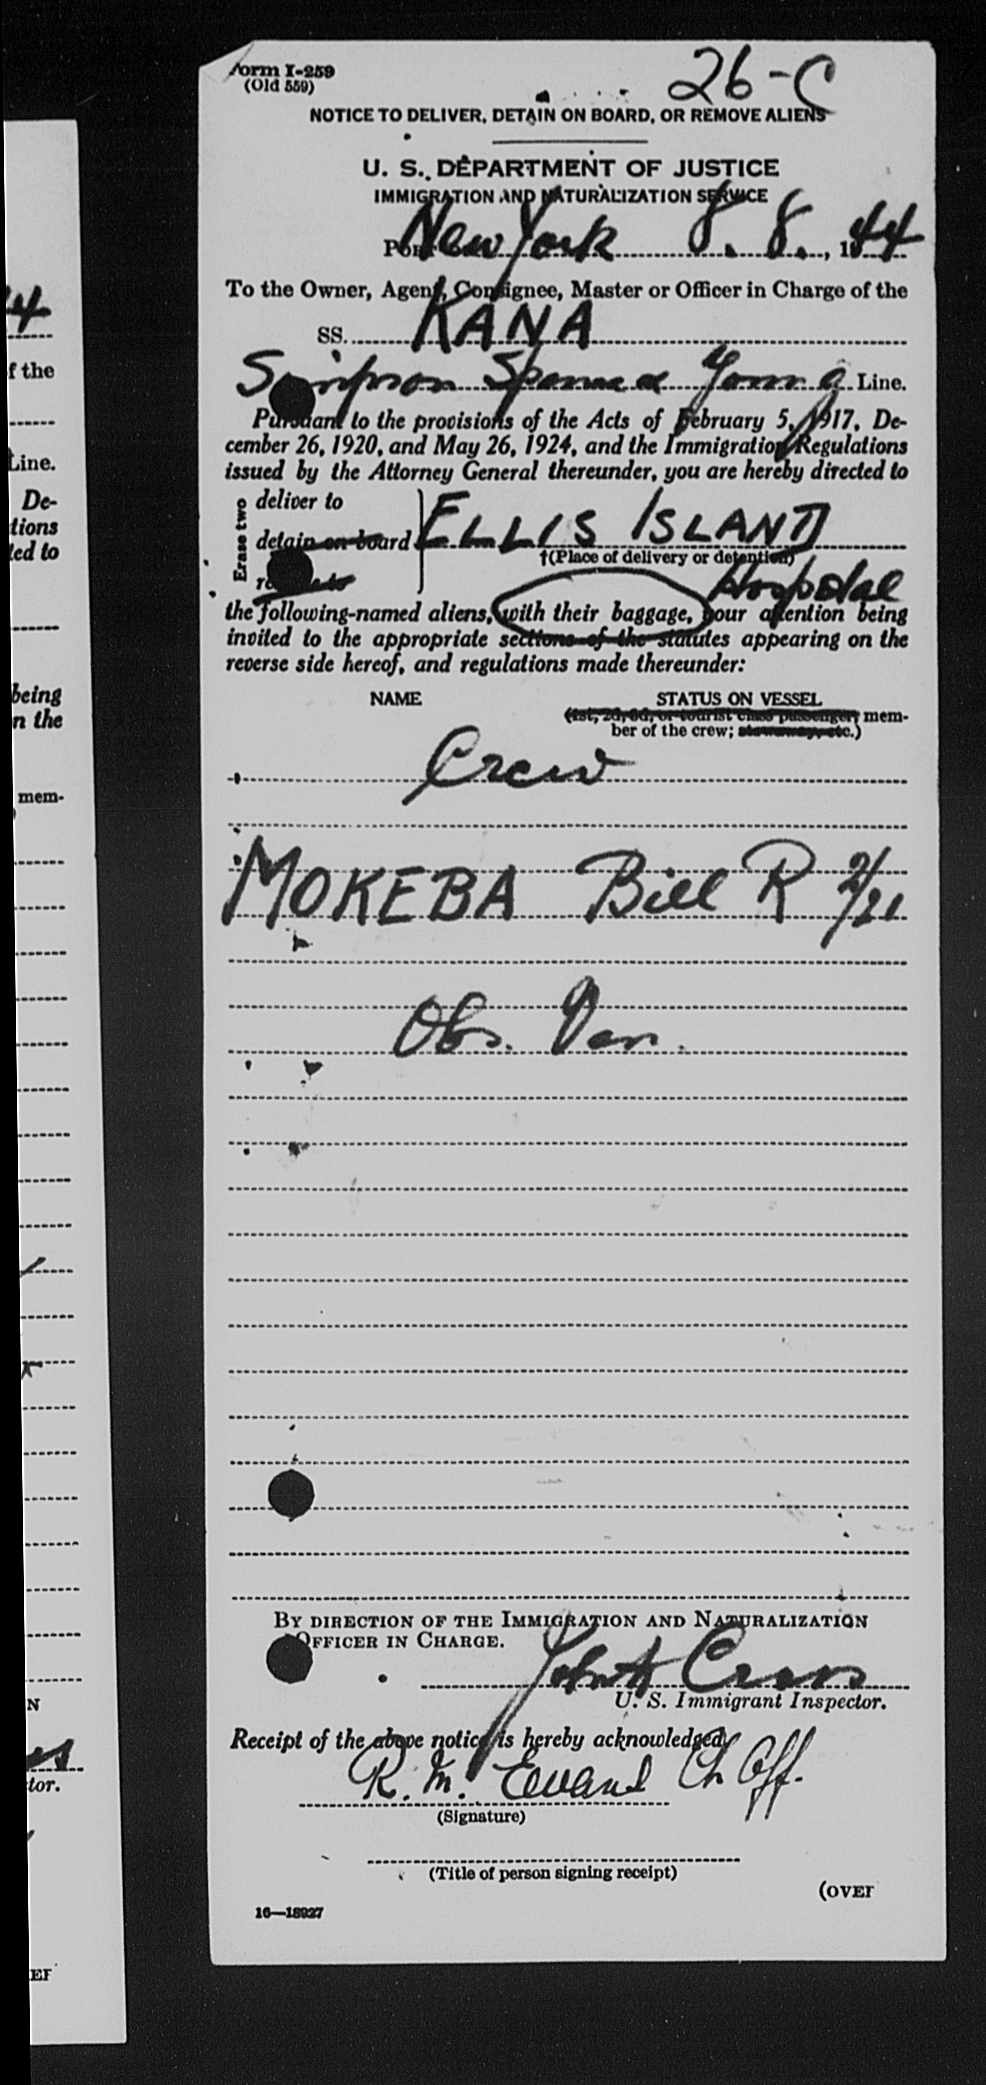 Form I-259
(Old 559)
26-C
NOTICE TO DELIVER, DETAIN ON BOARD, OR REMOVE ALIENS
U. S. DEPARTMENT OF JUSTICE
IMMIGRATION AND NATURALIZATION SERVICE
Port New York 8. 8., 1944
To the Owner, Agent, Consignee, Master or Officer in Charge of the
SS. KANA
Simpson Spence & Young Line.
Pursuant to the provisions of the Acts of February 5, 1917, De-
cember 26, 1920, and May 26, 1924, and the Immigration Regulations
issued by the Attorney General thereunder, you are hereby directed to
Erase two
deliver to
detain on board
ELLIS ISLAND
†(Place of delivery or detention)
Hospital
the following-named aliens, with their baggage, your attention being
invited to the appropriate sections of the statutes appearing on the
reverse side hereof, and regulations made thereunder:
NAME STATUS ON VESSEL
(1st, 2d, 3d, or tourist class passenger; mem-
ber of the crew; stowaway, etc.)
Crew
MOKEBA Bill R 2/21
Obs. Ven.
BY DIRECTION OF THE IMMIGRATION AND NATURALIZATION
OFFICER IN CHARGE.
John A Cross
U. S. Immigrant Inspector.
Receipt of the above notice is hereby acknowledged
R. M. Evans Ch Off.
(Signature)
(Title of person signing receipt)
(OVER
16—18927
4
f the
Line.
De-
tions
ted to
being
n the
mem-
N
tor.
ER